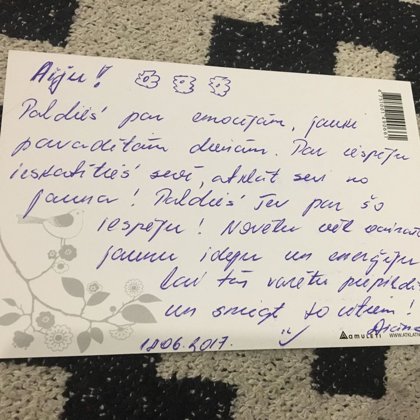 Aiju!
Paldies par emocijām, jauki
pavadītām dienām. Par iespēju
ieskatīties sevī, atklāt sevi no
jauna! Paldies Tev par šo
iespēju! Novēlu vēl
jaunu ideju un enerģiju
lai tās varētu piepildīt
un sniegt to citiem!
18.06.2017.
amuleti